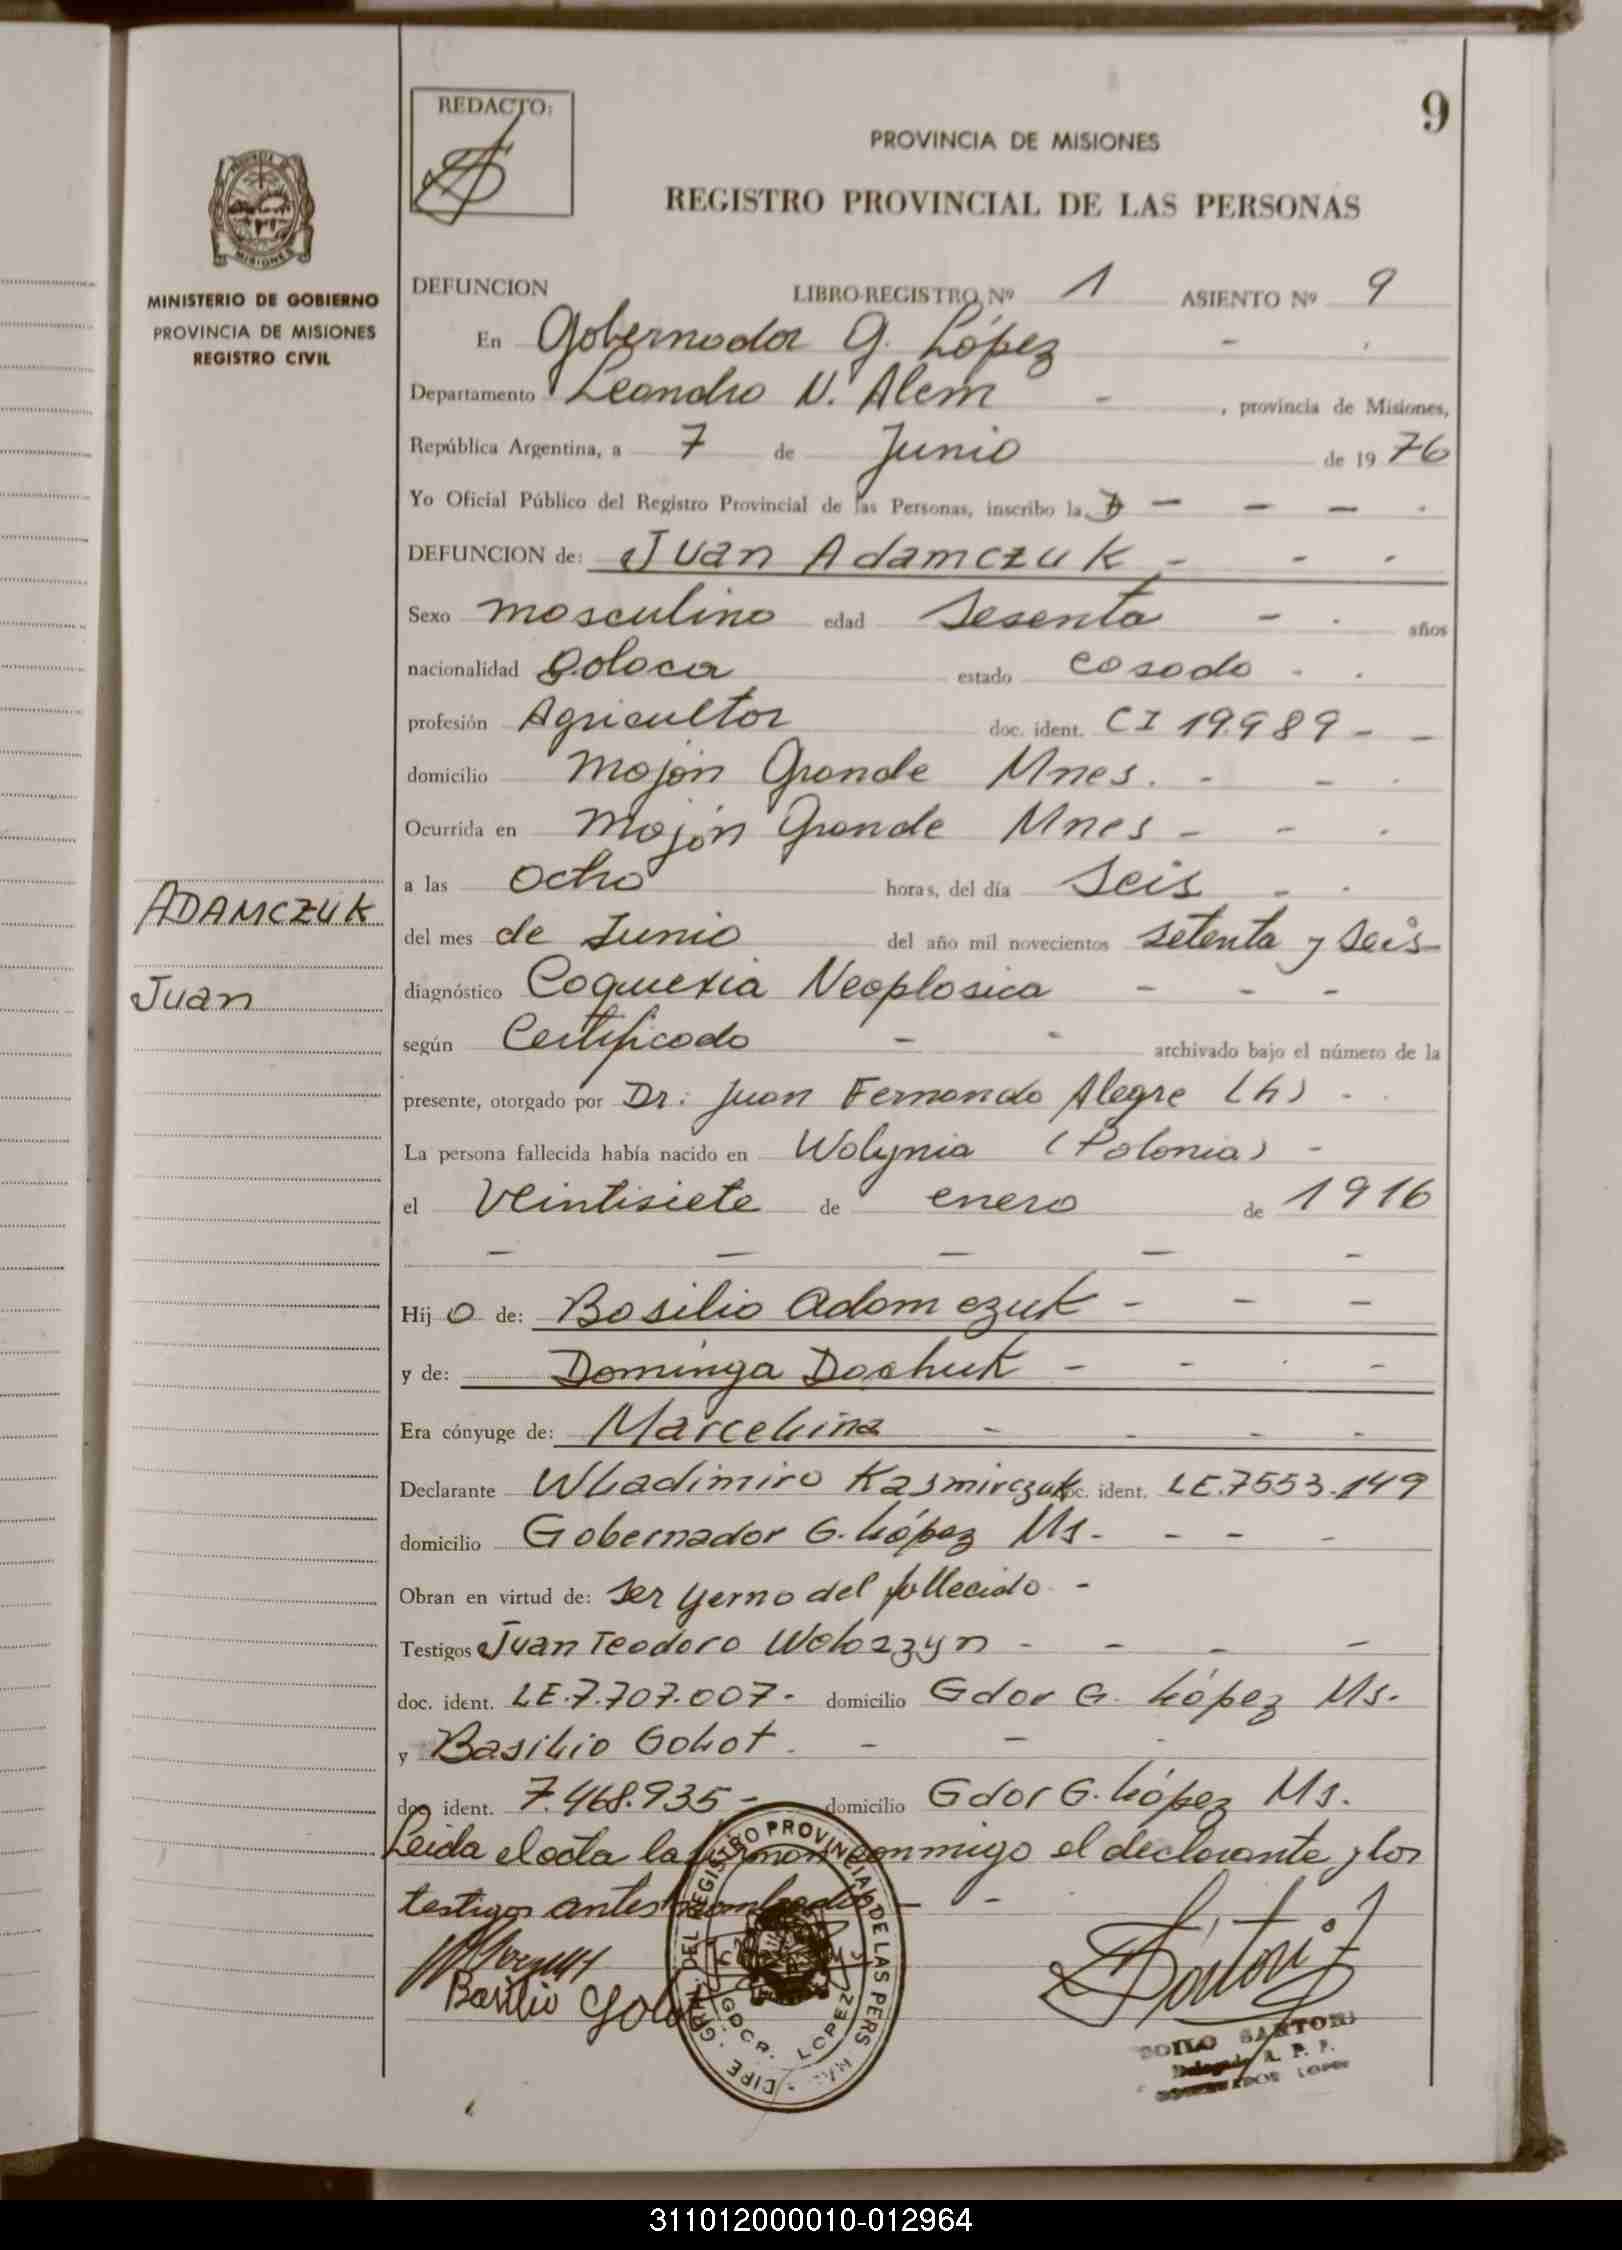 REDACTO:
9
PROVINCIA DE MISIONES
REGISTRO PROVINCIAL DE LAS PERSONAS
MISIONES
MINISTERIO DE GOBIERNO
PROVINCIA DE MISIONES
REGISTRO CIVIL
ADAMCZUK
Juan
DEFUNCION LIBRO-REGISTRO Nº 1 ASIENTO Nº 9
En Gobernador G. López - .
Departamento Leandro N. Alem - , provincia de Misiones,
República Argentina, a 7 de Junio de 1976
Yo Oficial Público del Registro Provincial de las Personas, inscribo la - - - .
DEFUNCION de: Juan Adamczuk - - -
Sexo masculino edad Sesenta - . años
nacionalidad Polaca estado casado - .
profesión Agricultor doc. ident. CI 19.989 - -
domicilio Mojón Grande Mnes. - - .
Ocurrida en Mojón Grande Mnes - - .
a las Ocho horas, del día Seis - .
del mes de Junio del año mil novecientos setenta y seis -
diagnóstico Caquexia Neoplasica - - -
según Certificado - - archivado bajo el número de la
presente, otorgado por Dr: Juan Fernando Alegre (h) - .
La persona fallecida había nacido en Wolynia (Polonia) -
el Veintisiete de enero de 1916
- - - - -
Hijo de: Basilio Adamczuk - - -
y de: Dominga Dachuk - - . -
Era cónyuge de: Marcelina - - - -
Declarante Wladimiro Kasmirczuk doc. ident. LE.7553.149
domicilio Gobernador G. López Ms. - - -
Obran en virtud de: Ser yerno del fallecido - -
Testigos Juan Teodoro Woloszyn - - - -
doc. ident. LE.7.707.007- domicilio Gdor G. López Ms.
y Basilio Golot . - - .
doc ident. 7.468.935 - domicilio Gdor G. López Ms.
Leida el acta la firman conmigo el declarante y los
testigos antes nombrados - -
Basilio Golot
REGISTRO PROVINCIAL DE LAS PERS
GDOR. LOPEZ
ZOILO SARTORI
Delegado R. P. P.
GOBERNADOR LOPEZ
311012000010-012964